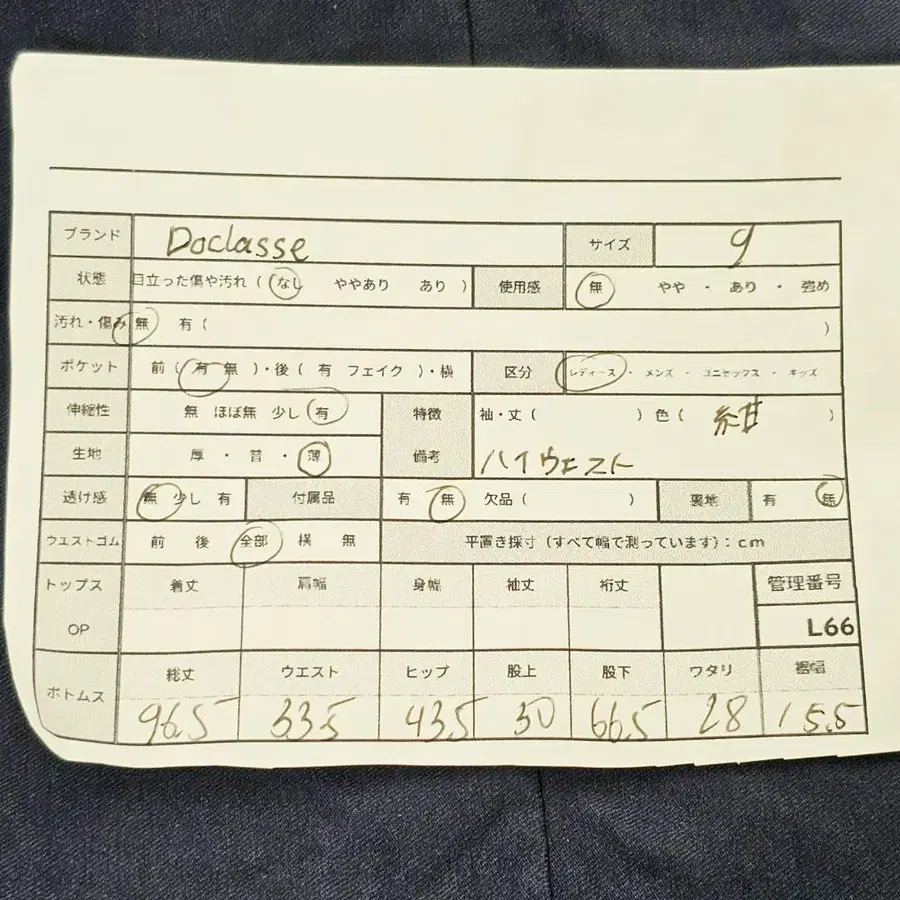 ブランド Doclasse サイズ 9
状態 目立った傷や汚れ ( なし ややあり あり ) 使用感 無 やや ・ あり ・ 強め
汚れ・傷み 無 有 ( )
ポケット 前 ( 有 無 )・後 ( 有 フェイク )・横 区分 レディース ・ メンズ ・ ユニセックス ・ キッズ
伸縮性 無 ほぼ無 少し 有 特徴 袖・丈 ( ) 色 ( 紺 )
生地 厚 ・ 普 ・ 薄 備考 ハイウエスト
透け感 無 少し 有 付属品 有 無 欠品 ( ) 裏地 有 無
ウエストゴム 前 後 全部 横 無 平置き採寸 (すべて幅で測っています) : cm
トップス 着丈 肩幅 身幅 袖丈 裄丈 管理番号
OP L66
ボトムス 総丈 ウエスト ヒップ 股上 股下 ワタリ 裾幅
96.5 33.5 43.5 30 66.5 28 15.5